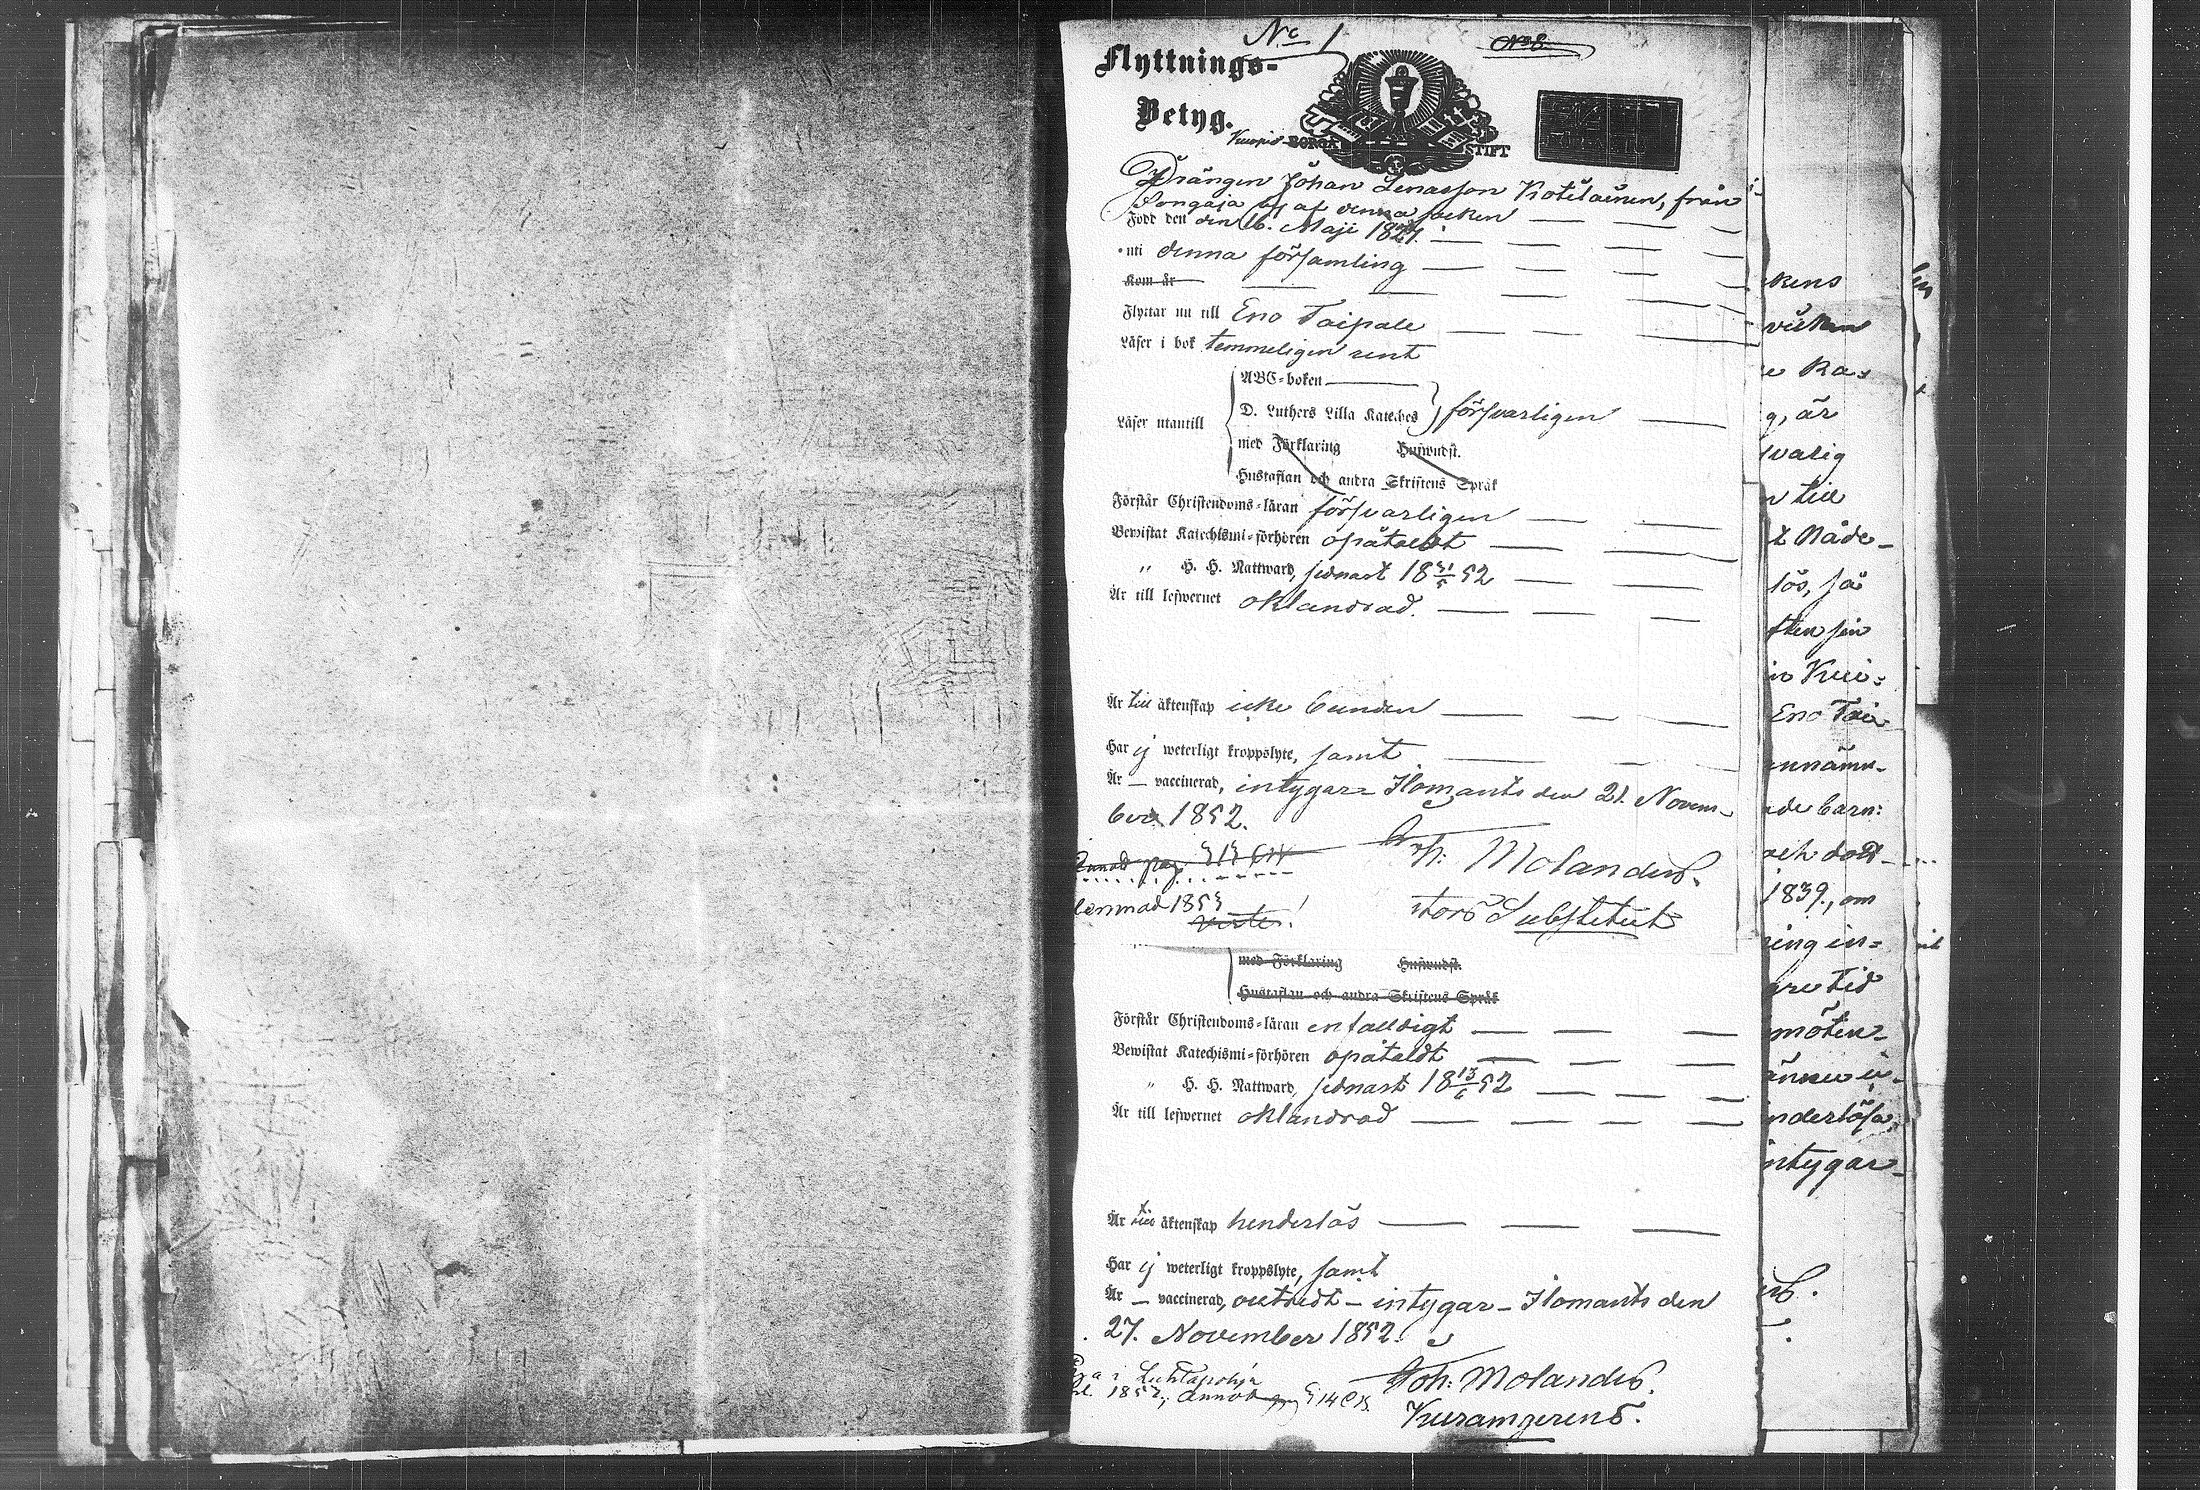 No 1
No 8.
Flyttnings-
Betyg.
Kuopio BORGÅ STIFT
Drängen Johan Lenasson Kotilainen, från
Songaja by af denna socken
Född den den 16. Maji 1827.
uti denna församling
Kom år
Flyttar nu till Eno Taipale
Läser i bok temmeligen rent
ABC-boken
Läser utantill
D. Luthers Lilla Kateches försvarligen
med Förklaring Huswudst.
Hustaflan och andra Skriftens Språk
Förstår Christendoms-läran försvarligen
Bewistat Katechismi-förhören opåtaldt
" H. H. Nattward, sednast 18 31/5 52
Är till lefwernet oklandrad.
Är till äktenskap icke bunden
Har ej weterligt kroppslyte, samt
Är — vaccinerad, intygar Ilomants den 21. Novem-
ber 1852.
Joh: Molander.
Annot pag.
lemnad 1853
Substitut
med Förklaring Huswudst.
Hustaflan och andra Skriftens Språk
Förstår Christendoms-läran enfalldigt
Bewistat Katechismi-förhören opåtaldt
" H. H. Nattward, sednast 18 13/6 52
Är till lefwernet oklandrad
Är till äktenskap hinderlös
Har ej weterligt kroppslyte, samt
Är — vaccinerad, outredt – intygar – Ilomants den
27. November 1852.
Luhtapohja
1852, Annot 514
Joh: Molander.
Kuramgerens.
kens
e Ka-
g, är
svarig
n till
t Nåde-
lös, så
ften sin
Eno Tai
ennämn-
ade barn:
och dott
1839., om
ning in-
are tid
möten
inderlösa,
intygar